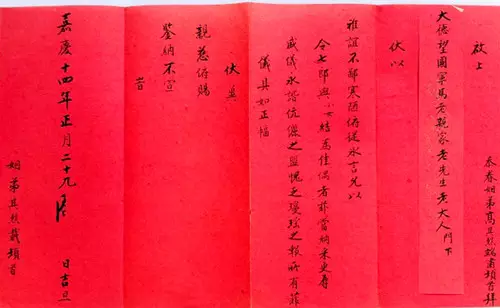 忝眷姻弟端肅頓首拜
啟上
大德望國學馬老親家老先生老大人門下
伏以
雅誼不鄙寒陋俯從永言兄以
令七郎與小女結為佳偶者菲當納采更辱
盛儀永諧伉儷之盟愧乏瓊瑤之報所有菲
儀具如正幅
伏冀
親慈俯賜
鑒納不宣
旹
嘉慶十四年正月二十九日吉旦
姻弟再頓首